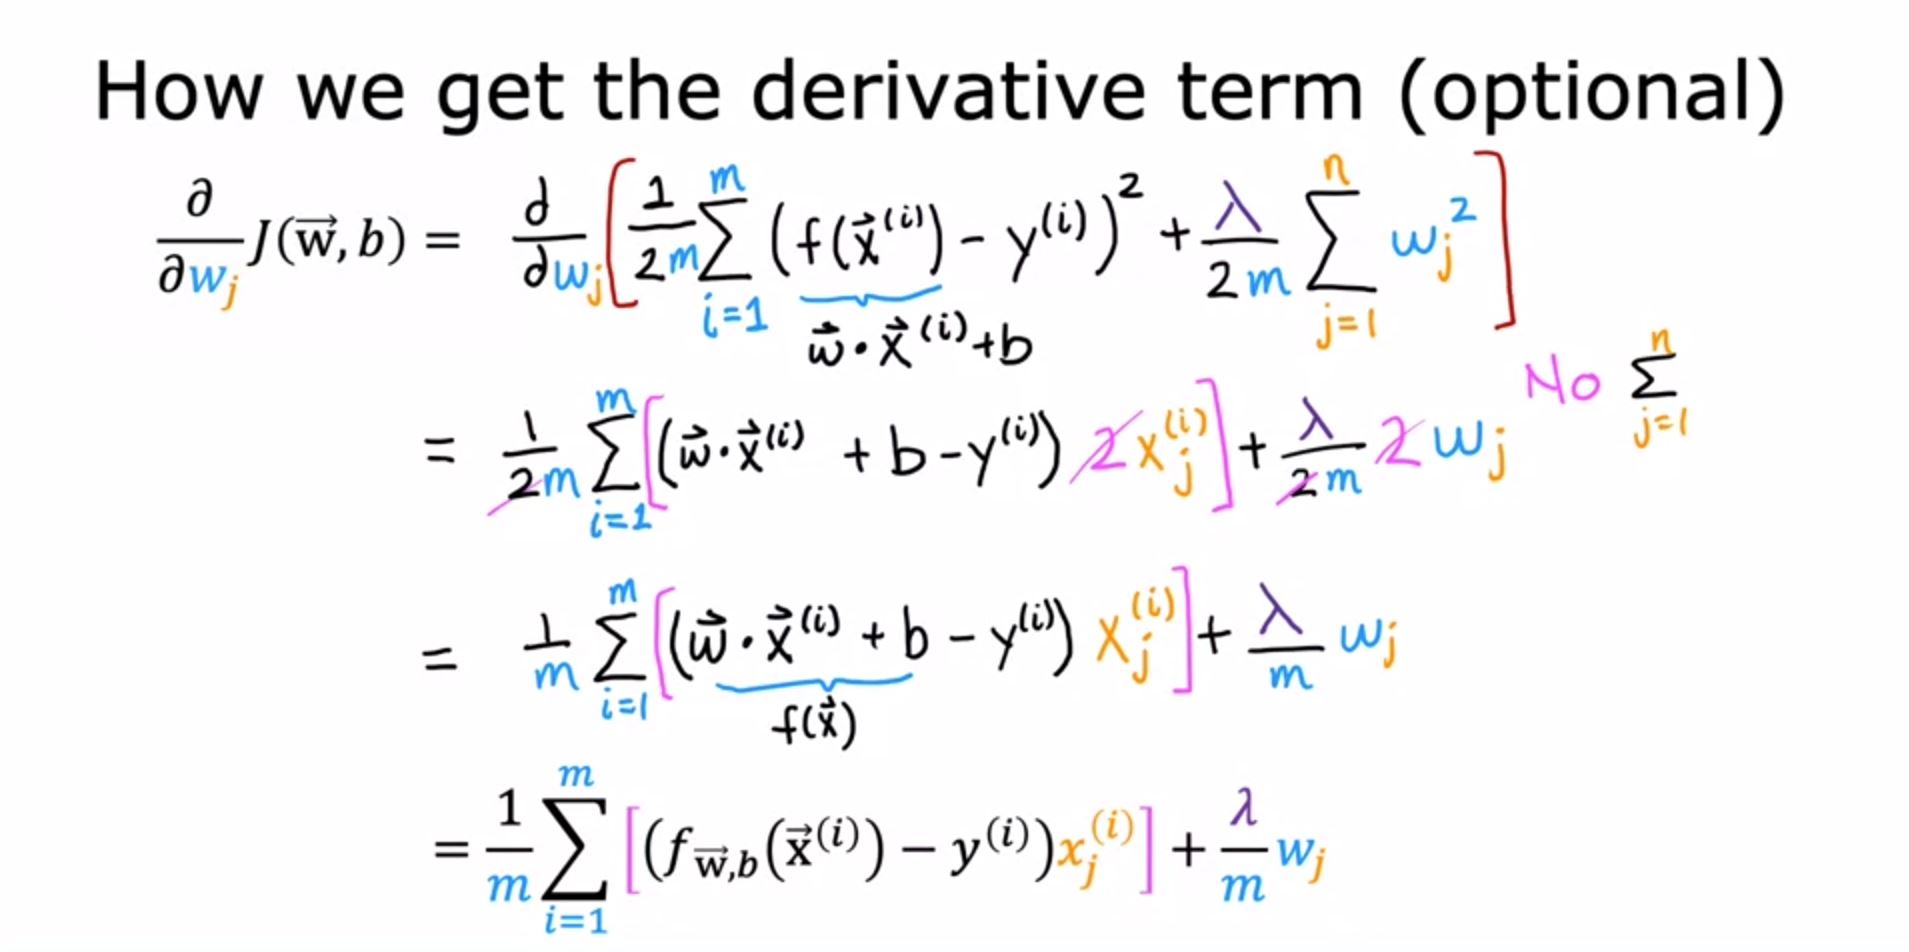 How we get the derivative term (optional)
∂/∂w_j J(w⃗, b) = ∂/∂w_j [ 1/2m ∑_{i=1}^{m} (f(x⃗^(i)) - y^(i))^2 + λ/2m ∑_{j=1}^{n} w_j^2 ]
w⃗ · x⃗^(i) + b
No ∑_{j=1}^{n}
= 1/2m ∑_{i=1}^{m} [ (w⃗ · x⃗^(i) + b - y^(i)) 2 x_j^(i) ] + λ/2m 2 w_j
= 1/m ∑_{i=1}^{m} [ (w⃗ · x⃗^(i) + b - y^(i)) x_j^(i) ] + λ/m w_j
f(x⃗)
= 1/m ∑_{i=1}^{m} [ (f_{w⃗,b}(x⃗^(i)) − y^(i)) x_j^(i) ] + λ/m w_j